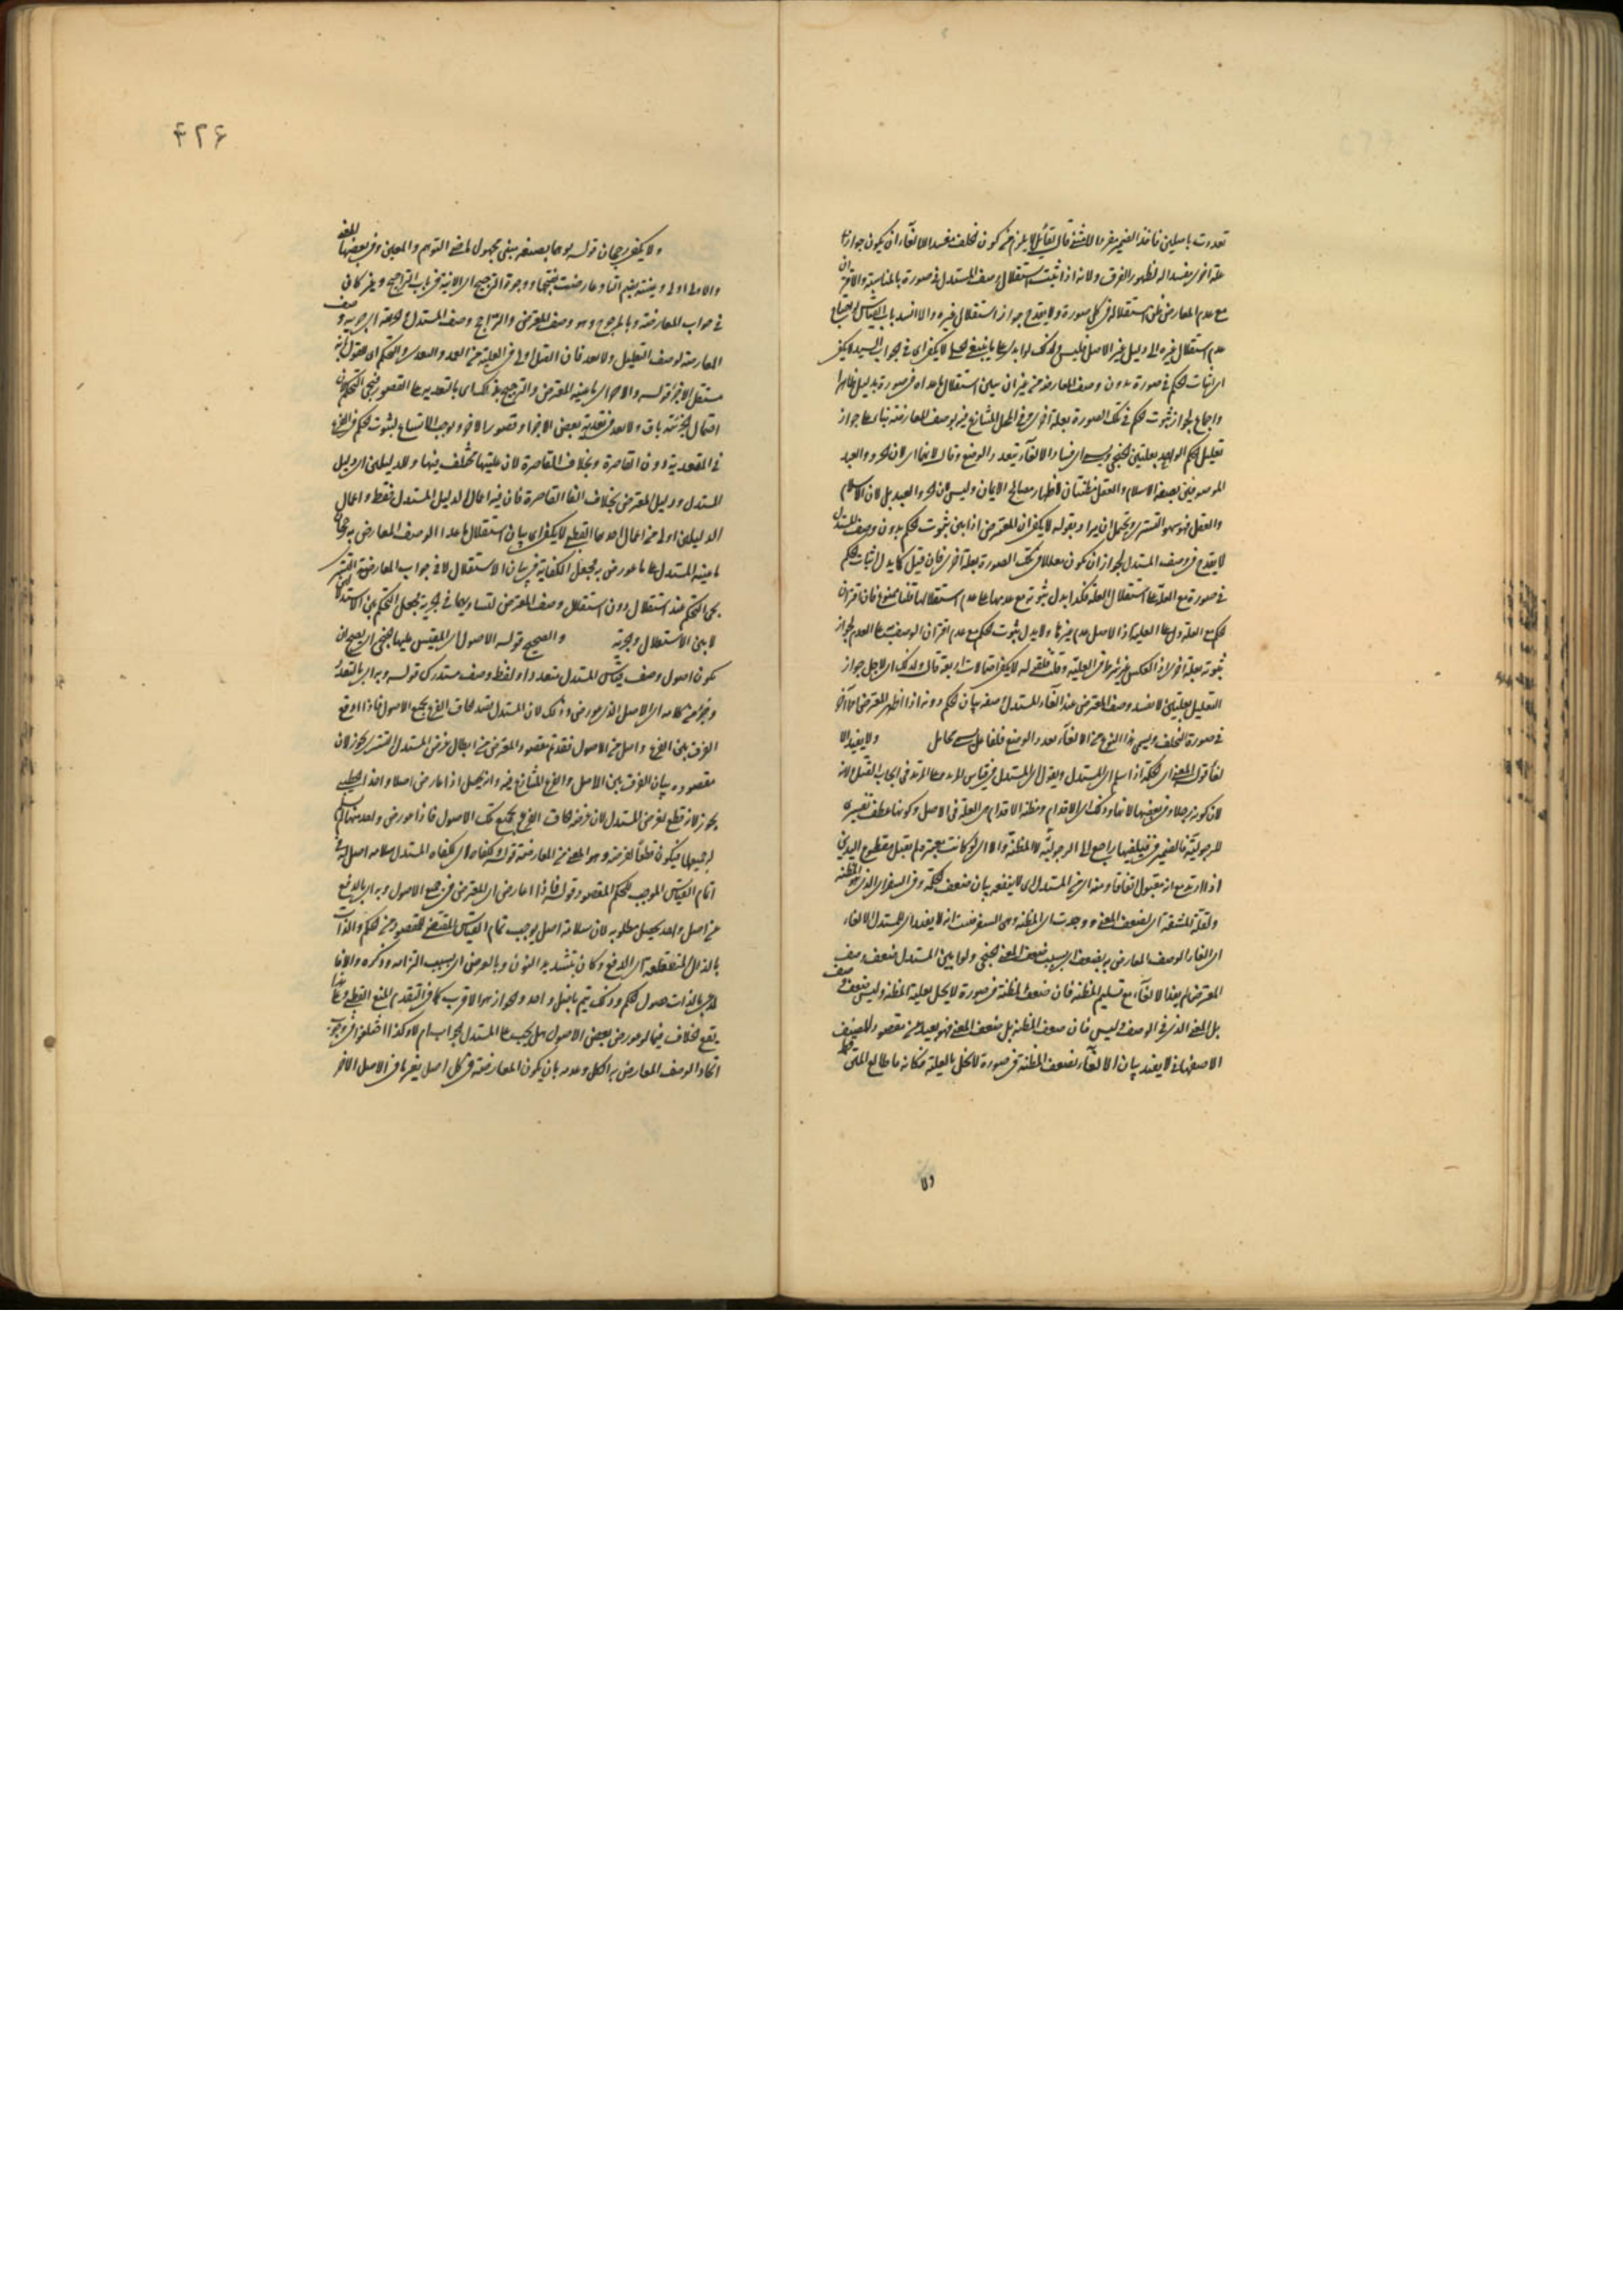 تعددت باصلين فاخذ الضمير مفردا لا مثنى قال قائل لا يلزم من كون الخلف مفسدا لالغاء ان يكون جواز
علة اخرى مفسدا له لظهور الفرق ولانه اذا ثبت استقلال وصف المستدل في صورة بالمناسبة والاقتران
مع عدم المعارض ظن استقلاله في كل صورة ولا يقدح جواز استقلال غيره والا انسد باب القياس
عدم استقلال غيره الى دليل غير الاصل فليس ولذلك لو ابدى لا يكفى في جواب السيد لا يكفى
اى اثبات الحكم في صورة بدون وصف المعارضة من غير ان يبين استقلال ما عداه في صورة بدليل ظاهر
واجماع لجواز ثبوت الحكم في تلك الصورة بعلة اخرى وفي المحل المتنازع فيه بوصف المعارضة بناء على جواز
تعليل الحكم الواحد بعلتين فساد الالغاء بتعدد الوضع وقال لانهما اى لان الحر والعبد
الموصوفين بصفة الاسلام والعقل مظنتان لاظهار مصالح الايمان وليس لان الحر والعبد بل لان الاسلام
والعقل فهو سهو التسترى ويحتمل ان يراد بقوله لا يكفى ان المعترض اذا بين ثبوت الحكم بدون وصف المستدل
لا يقدح في وصف المستدل لجواز ان يكون معللا في تلك الصورة بعلة اخرى فان قيل كما يدل اثبات الحكم
في صورة مع العلة على استقلال العلة فكذا يدل ثبوته مع عدمها على عدم استقلالها قلنا ممنوع فان اقتران
الحكم مع العلة دل على العلية اذ الاصل عدم غيرها ولا يدل ثبوت الحكم مع عدم اقتران الوصف على العدم لجواز
ثبوته بعلة اخرى اذ العكس غير شرط في العلية وقلنا فقوله لا يكفى احتمالات اربعة قال ولذلك اى لاجل جواز
التعليل بعلتين لا يفسد وصف المعترض عند الغاء المستدل وصفه ببيان الحكم دونه اذا اظهر المعترض امرا آخر
في صورة الخلف ويسمى هذا النوع من الالغاء تعدد الوضع فلفاعل يسمى تحامل ولا يفيد الا
لغاء قوله المعنى اى الحكمة اذا سلم اى المستدل ويقول اى المستدل في قياس المرتدة على المرتد في ايجاب القتل لانه
لان كونه رجلا وفي بعضها لانها وذلك اى الاقدام ومظنة الاقدام هى العلة في الاصل وكونها عطف تفسيرى
للرجولية فالضمير في قبيلهما راجع الى الرجولية لا المظنة والا اى لو كانت معتبرة لم يقتل مقطوع اليدين
اذا ارتد مع انه مقبول اتفاقا ومنه اى من المستدل اى لا ينفعه بيان ضعف الحكمة وفي السفر اى الذى هو المظنة
ولقلة المشقة اى لضعف المعنى ووجدت اى المظنة وهى السفر فثبت انه لا يفيد اى المستدل الالغاء
اى الغاء الوصف المعارض به بضعف اى بسبب ضعف المعنى ولو ابين المستدل ضعف وصف
المعترض لم يفد الالغاء مع تسليم المظنة فان ضعف المظنة في صورة لا يخل بعلية المظنة وليس ضعف وصف
بل المعنى الذى في الوصف وليس فان ضعف المظنة بل ضعف المعنى فهو بعيد عن مقصود المصنف
الاصفهانى لا يفيد بيان الالغاء لضعف المظنة في صورة لا يخل بالعلية فكانه ما طالع المتن قط
ولا
۴۲۶
ولا يكفى رجحان قوله بوجه ما بصيغة مبنى مجهول المضى التوهم والمعين وفي بعضها المعنى
والاولى اولى وعينته بغير التاء وعارضت بفتحها ووجوه الترجيح اى الاتية في باب التراجيح وغير كاف
في جواب المعارضة وبالمرجوح وهو وصف المعترض والراجح وصف المستدل لجزئية وصف
المعارضة لوصف التعليل ولا بعد فان القتل اولى في العلية من العمد والعدوان والتحكم اى القول بانه
مستقل الاخر قوله والاخر اى ما عينه المعترض والترجيح بذلك اى بالتعدية على القصور فيجئ التحكم لان
احتمال الجزئية باق ولا بعد في تعدية بعض الاجزاء وقصور الاخر ويوجب الاتساع لثبوت الحكم في الفرع
في المتعدية دون القاصرة وبخلاف القاصرة لان عليتها مختلف فيها وللدليلين اى دليل
المستدل ودليل المعترض بخلاف الغاء القاصرة فان فيه اعمالا لدليل المستدل فقط واعمال
الدليلين اولى من اعمال احدهما القطبى لا يكفى اى بيان استقلال ما عدا الوصف المعارض به رجحان
ما عينه المستدل على ما عورض به فجعل الكفاية في بيان الاستقلال لا في جواب المعارضة التسترى
يجئ التحكم عند استقلال دون استقلال وصف المعترض لتساويهما في الجزئية فجعل التحكم بين الاستقلالين
لا بين الاستقلال والجزئية والصحيح قوله الاصول اى المقيس عليها
يكون اصول وصف قياس المستدل متعددا ولفظ وصف مستدرك قوله وبه اى بالتعدد
وجزء من كلامه اى الاصل الذى عورض وذلك لان المستدل قصد الحاق الفرع بجميع الاصول فاذا اوقع
الفرق بين الفرع واصل من الاصول فقد تم مقصود المعترض من ابطال غرض المستدل التسترى يجوز لان
مقصوده بيان الفرق بين الاصل والفرع المتنازع فيه وانه يحصل اذا عارض اصلا واحدا الخطيبى
يجوز لانه قطع لغرض المستدل لان غرضه الحاق الفرع بجميع تلك الاصول فاذا عورض واحد منها لم يسلم
له جميعها فيكون قطعا لغرضه وهو المعنى من المعارضة قوله وكفاه اى كفاه المستدل سلامة اصل له في
اتمام القياس الموجب للحكم المقصود وقوله فاذا عارض اى المعترض في جميع الاصول وبه اى بالدفع
عن اصل واحد يحصل مطلوبه لان سلامة اصل يوجب تمام القياس المقتضى للمقصود من الحكم
بالذال المنقطعة اى الدفع وكان بتشديد النون وبالعرض اى بسبب التزامه وذكره والا فا
لمدعى بالذات حصول الحكم وذلك يتم باثبات واحد والجواز هو الاقرب كما في التقدم للمنع القطبى وعلى هذا
يقع الخلاف فيما لو عورض بعض الاصول هل يجب على المستدل الجواب ام لا وكذا اختلفوا في وجوب
اتحاد الوصف المعارض به الكل وعدمه بان يكون المعارضة في كل اصل بغير ما في الاصل الاخر